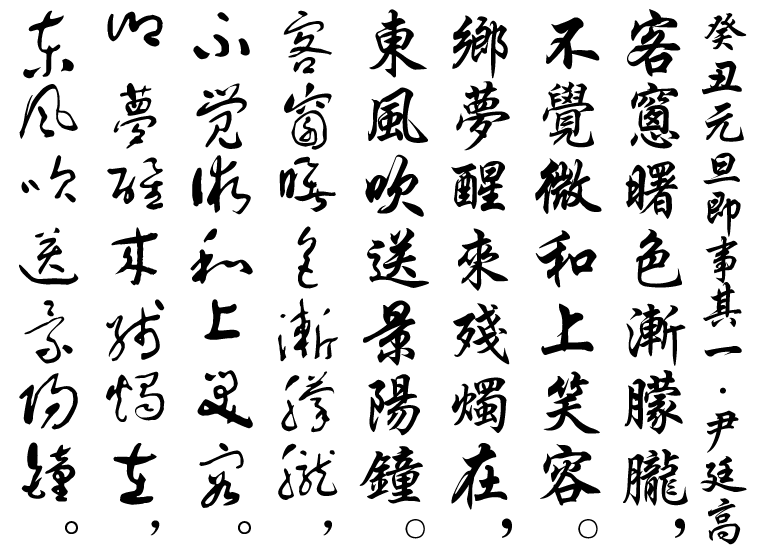 癸丑元旦即事其一·尹廷高
客窻曙色漸朦朧，
不覺微和上笑容。
鄉夢醒來殘燭在，
東風吹送景陽鐘。
客窗曙色漸朦朧，
不覺微和上笑容。
鄉夢醒來殘燭在，
東風吹送景陽鐘。